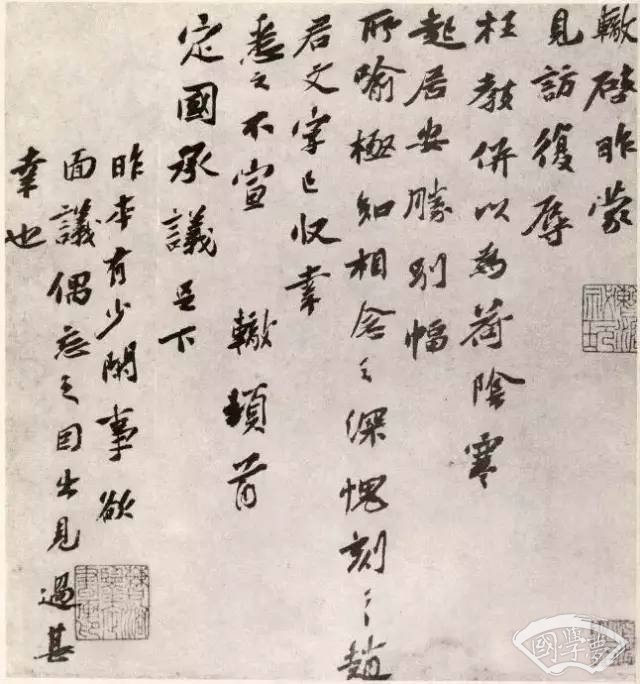 轍啓昨蒙
見訪復辱
枉教併以為荷陰寒
起居安勝別幅
所喻極知相念之深愧刻〻趙
君文字已收幸
悉之不宣 轍頓首
定國承議足下
昨本有少閑事欲
面議偶忘之因出見過甚
幸也
國學夢